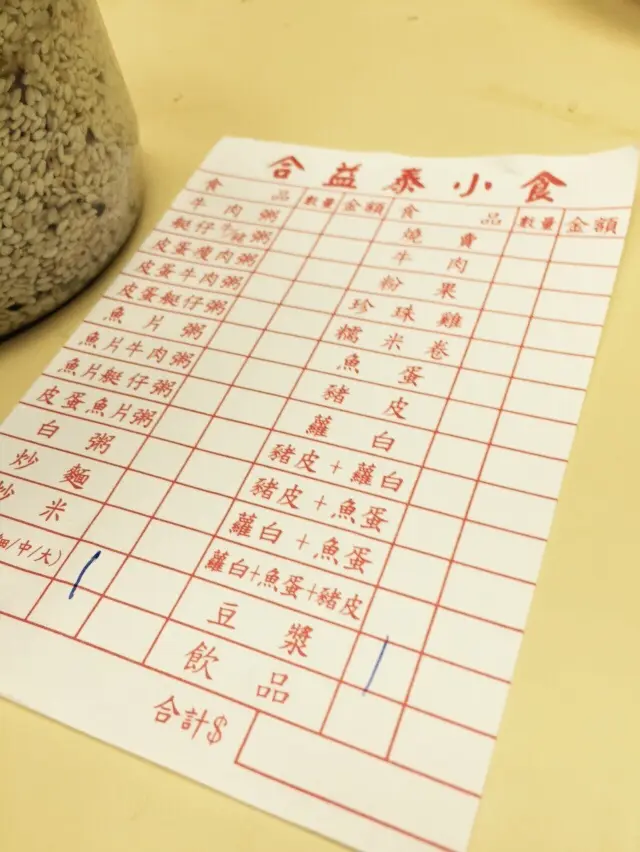 合益泰小食
食品 數量 金額 食品 數量 金額
牛肉粥 燒賣
艇仔粥 牛肉
皮蛋瘦肉粥 粉果
皮蛋牛肉粥 珍珠雞
皮蛋艇仔粥 糯米卷
魚片粥 魚蛋
魚片牛肉粥 豬皮
魚片艇仔粥 蘿白
皮蛋魚片粥 豬皮+蘿白
白粥 豬皮+魚蛋
炒麵 蘿白+魚蛋
炒米 蘿白+魚蛋+豬皮
/中/大) 豆漿
飲品
合計$